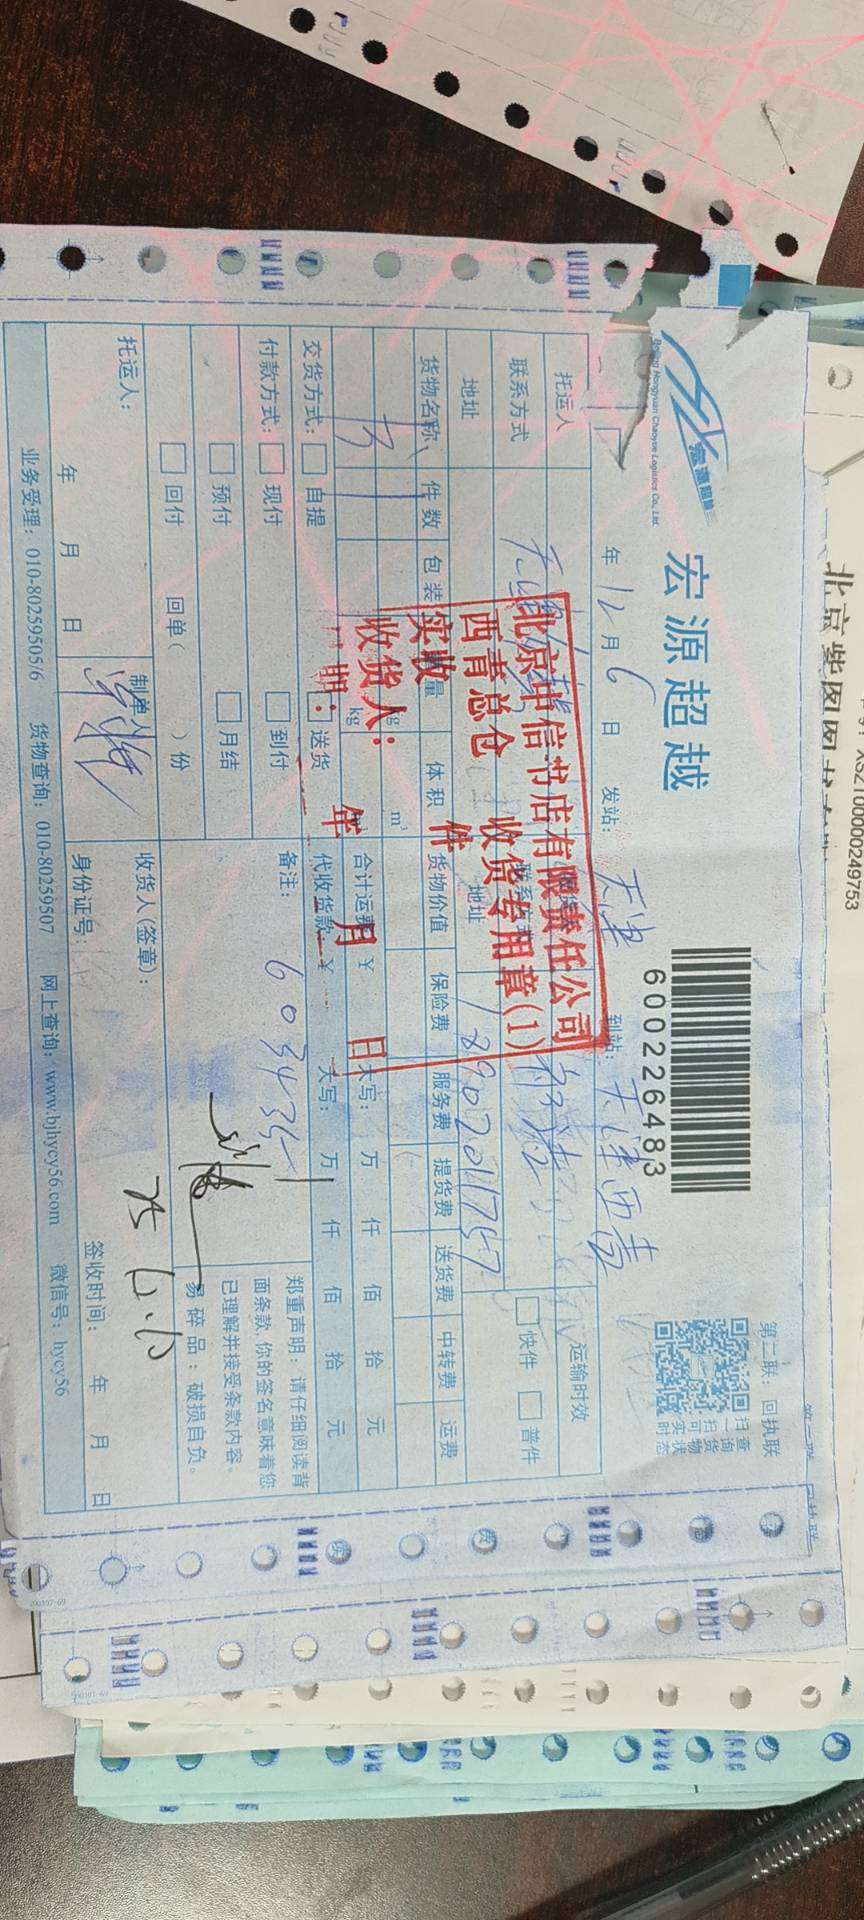 宏源超越
Beijing Hongyuan Chaoyue Logistics Co., Ltd.
6002226483
第二联：回执联
扫一扫可实时
查询货物状态
年 12 月 6 日 发站： 天津 到站： 天津西青
托运人
运输时效
联系方式
联系方式
快件 普件
地址
地址 18902011757
货物名称 件数 包装 重量 体积 货物价值 保险费 服务费 提货费 送货费 中转费 运费
kg m³
书 1
kg m³
交货方式： 自提 送货 合计运费 ¥ 大写： 万 仟 佰 拾 元
代收货款： ¥ 大写： 万 仟 佰 拾 元
付款方式： 现付 到付
预付 月结
回付 回单（ ）份
备注： 6034351
郑重声明：请仔细阅读背
面条款，你的签名意味着您
已理解并接受条款内容。
易碎品：破损自负。
托运人：
年 月 日
制单人
收货人(签章)：
身份证号：
签收时间： 年 月 日
业务受理：010-80259505/6 货物查询：010-80259507 网上查询：www.bjhycy56.com 微信号：hycy56
北京中信书店有限责任公司
西青总仓 收货专用章(1)
实收 件
收货人：
期： 年 月 日
XSZ1000000249753
北京紫图图书有限